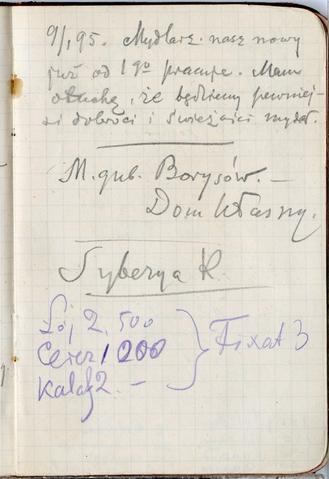 9/I, 95. Mydlarz nasz nowy
już od 1go pracuje. Mam
otuchę, że będziemy pewniej-
si dobroci i świeżości mydeł.
M. gub. Borysów. –
Dom Własny.
Syberya R.
Łój 2,500
Cerez 1 200
Kalafj 2. –
Fixat 3